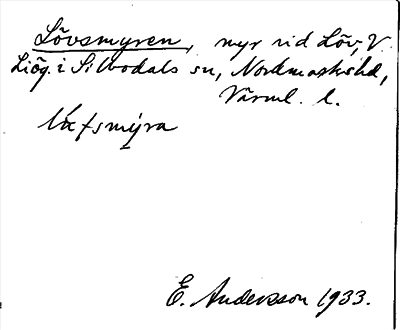 Lövsmyren, myr vid Löv, V.
Liög. i Silbodals sn, Nordmarks hd,
Värml. l.
E. Andersson 1933.